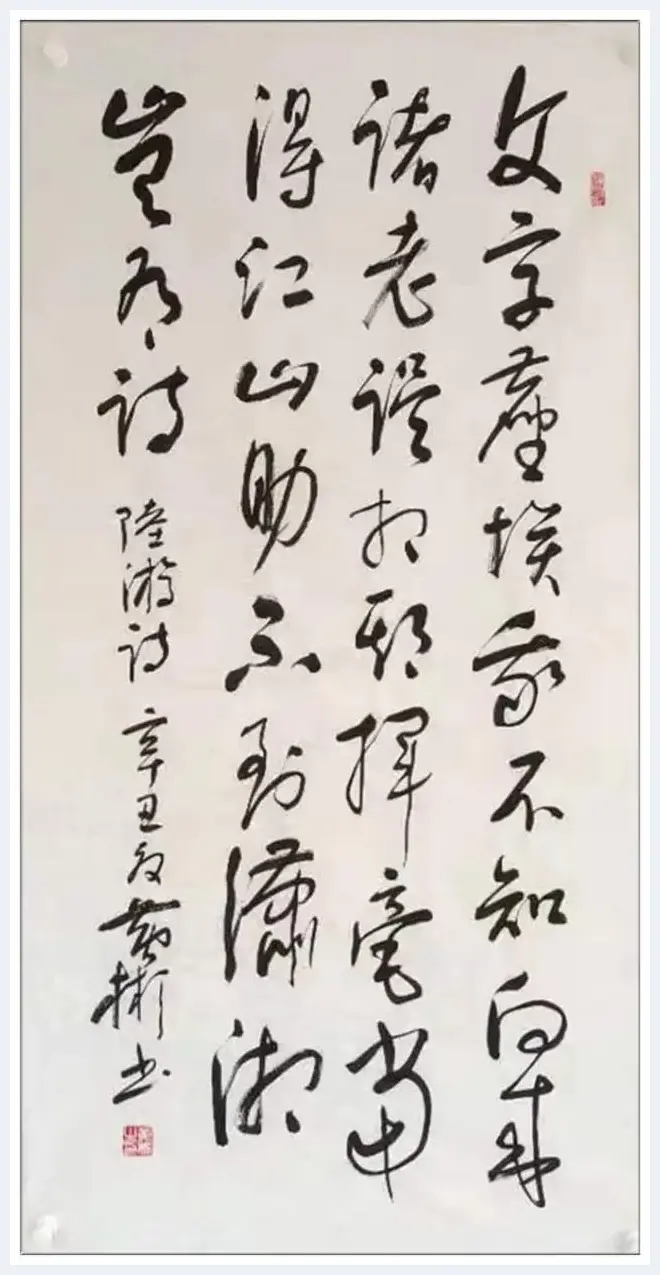 文字塵埃我不知向來
諸老誤相期揮毫當
得江山助不到瀟湘
豈有詩 陸游詩 辛丑 黃彬書